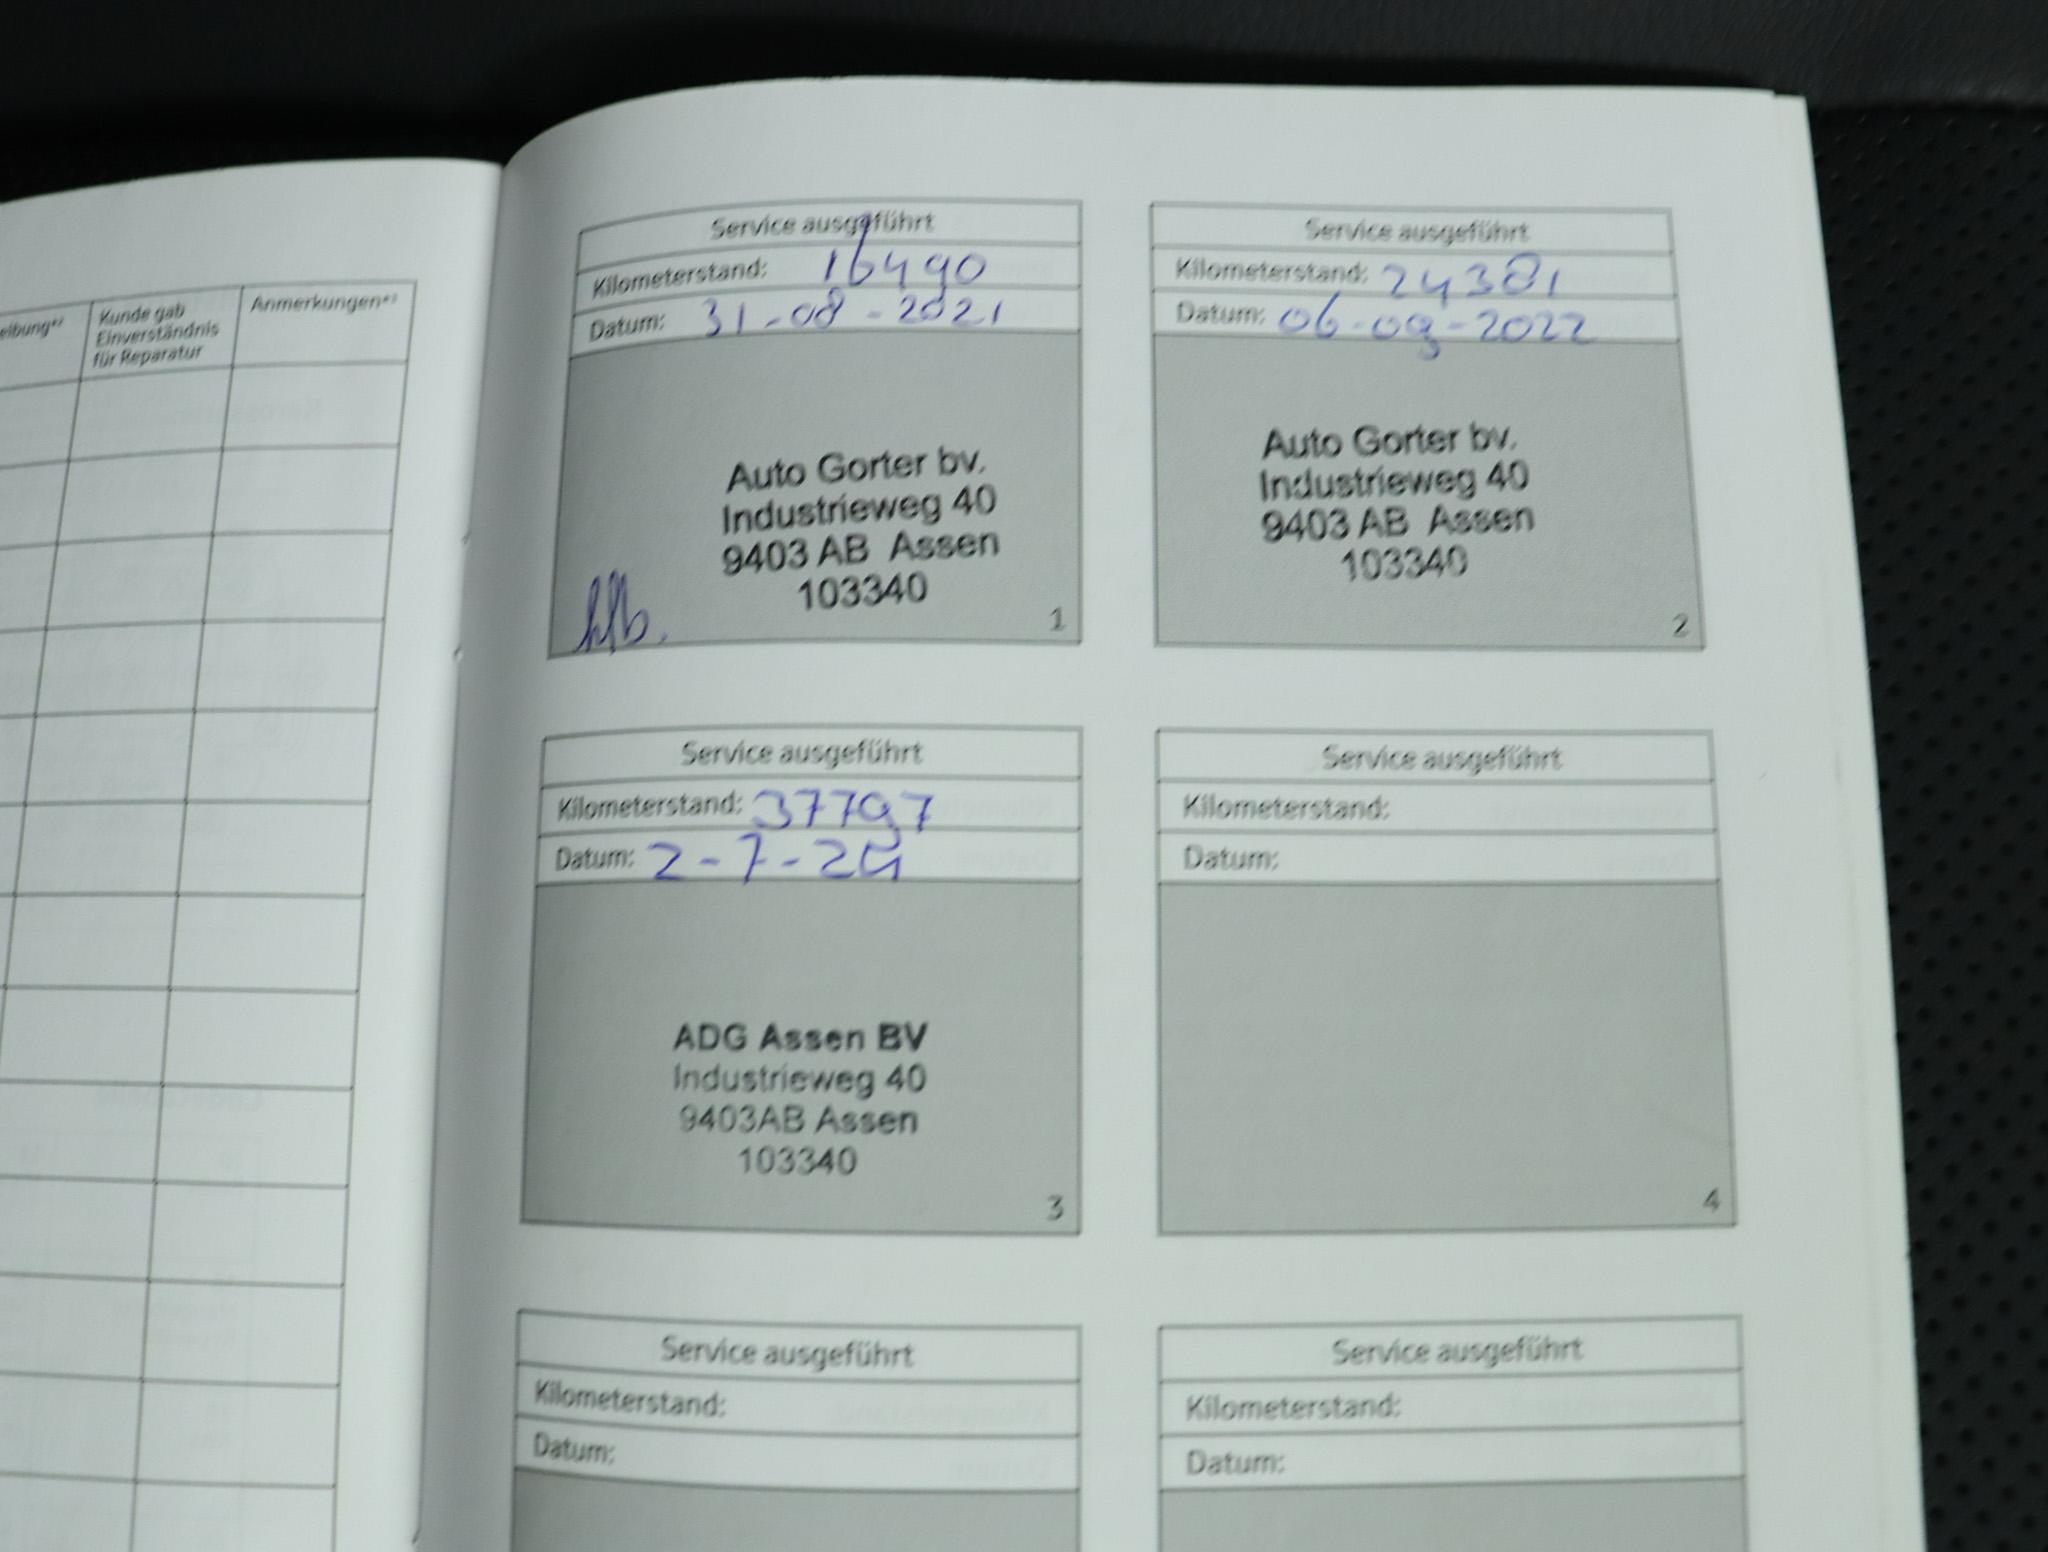 Kunde gab
Einverständnis
für Reparatur
Anmerkungen*⁾
Service ausgeführt
Kilometerstand: 16490
Datum: 31-08-2021
Auto Gorter bv.
Industrieweg 40
9403 AB Assen
103340
1
Service ausgeführt
Kilometerstand: 24381
Datum: 06-09-2022
Auto Gorter bv.
Industrieweg 40
9403 AB Assen
103340
2
Service ausgeführt
Kilometerstand: 37797
Datum: 2-7-24
ADG Assen BV
Industrieweg 40
9403AB Assen
103340
3
Service ausgeführt
Kilometerstand:
Datum:
4
Service ausgeführt
Kilometerstand:
Datum:
Service ausgeführt
Kilometerstand:
Datum: